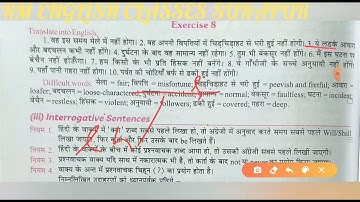 RM ENGLISH CLASSES
Exercise 8
Translate into English:
1. वह इस समय मेले में नहीं होगा। 2. वह अपनी विपत्तियों में चिड़चिड़ाहट से भरा हुई नहीं होगी। 3. ये लड़के आवारा
और बदचलन कभी नहीं होंगे। 4. दुर्घटना के बाद वह सामान्य नहीं रहेगा। 5. तुम भी बेकसूर नहीं होगे। 6. मैं इस घटना पर
बेचैन नहीं होऊँगा। 7. हम किसी के भी प्रति हिंसक नहीं बनेंगे। 8. वे गाँधीजी के सच्चे अनुयायी नहीं होंगे।
9. यहाँ पानी गहरा नहीं होगा। 10. पर्वत की चोटियाँ बर्फ से ढकी हुई नहीं होंगी।
Difficult words: मेला = fair; विपत्ति = misfortune; चिड़चिड़ाहट से भरा हुई = peevish and fretful; आवारा =
loafer; बदचलन = loose-charactered; दुर्घटना = accident; सामान्य = normal; बेकसूर = faultless; घटना = incident,
बेचैन = restless; हिंसक = violent; अनुयायी = followers; ढकी हुई = covered; गहरा = deep.
(iii) Interrogative Sentences
नियम 1. हिंदी के वाक्यों में 'क्या' शब्द सबसे पहले लिखा हो, तो अंग्रेजी में अनुवाद करते समय सबसे पहले Will/Shall
लिखा जाएगा, फिर कर्ता और फिर उसके बाद be लिखते हैं।
नियम 2. हिंदी के वाक्यों के बीच में कोई प्रश्नवाचक शब्द आया हो, तो उसको अंग्रेजी सबसे पहले लिखी जाएगी।
नियम 3. प्रश्नवाचक वाक्य यदि साथ में नकारात्मक भी है, तो कर्ता के बाद not
नियम 4. वाक्य के अन्त में प्रश्नवाचक चिह्न (?) का प्रयोग होता है।